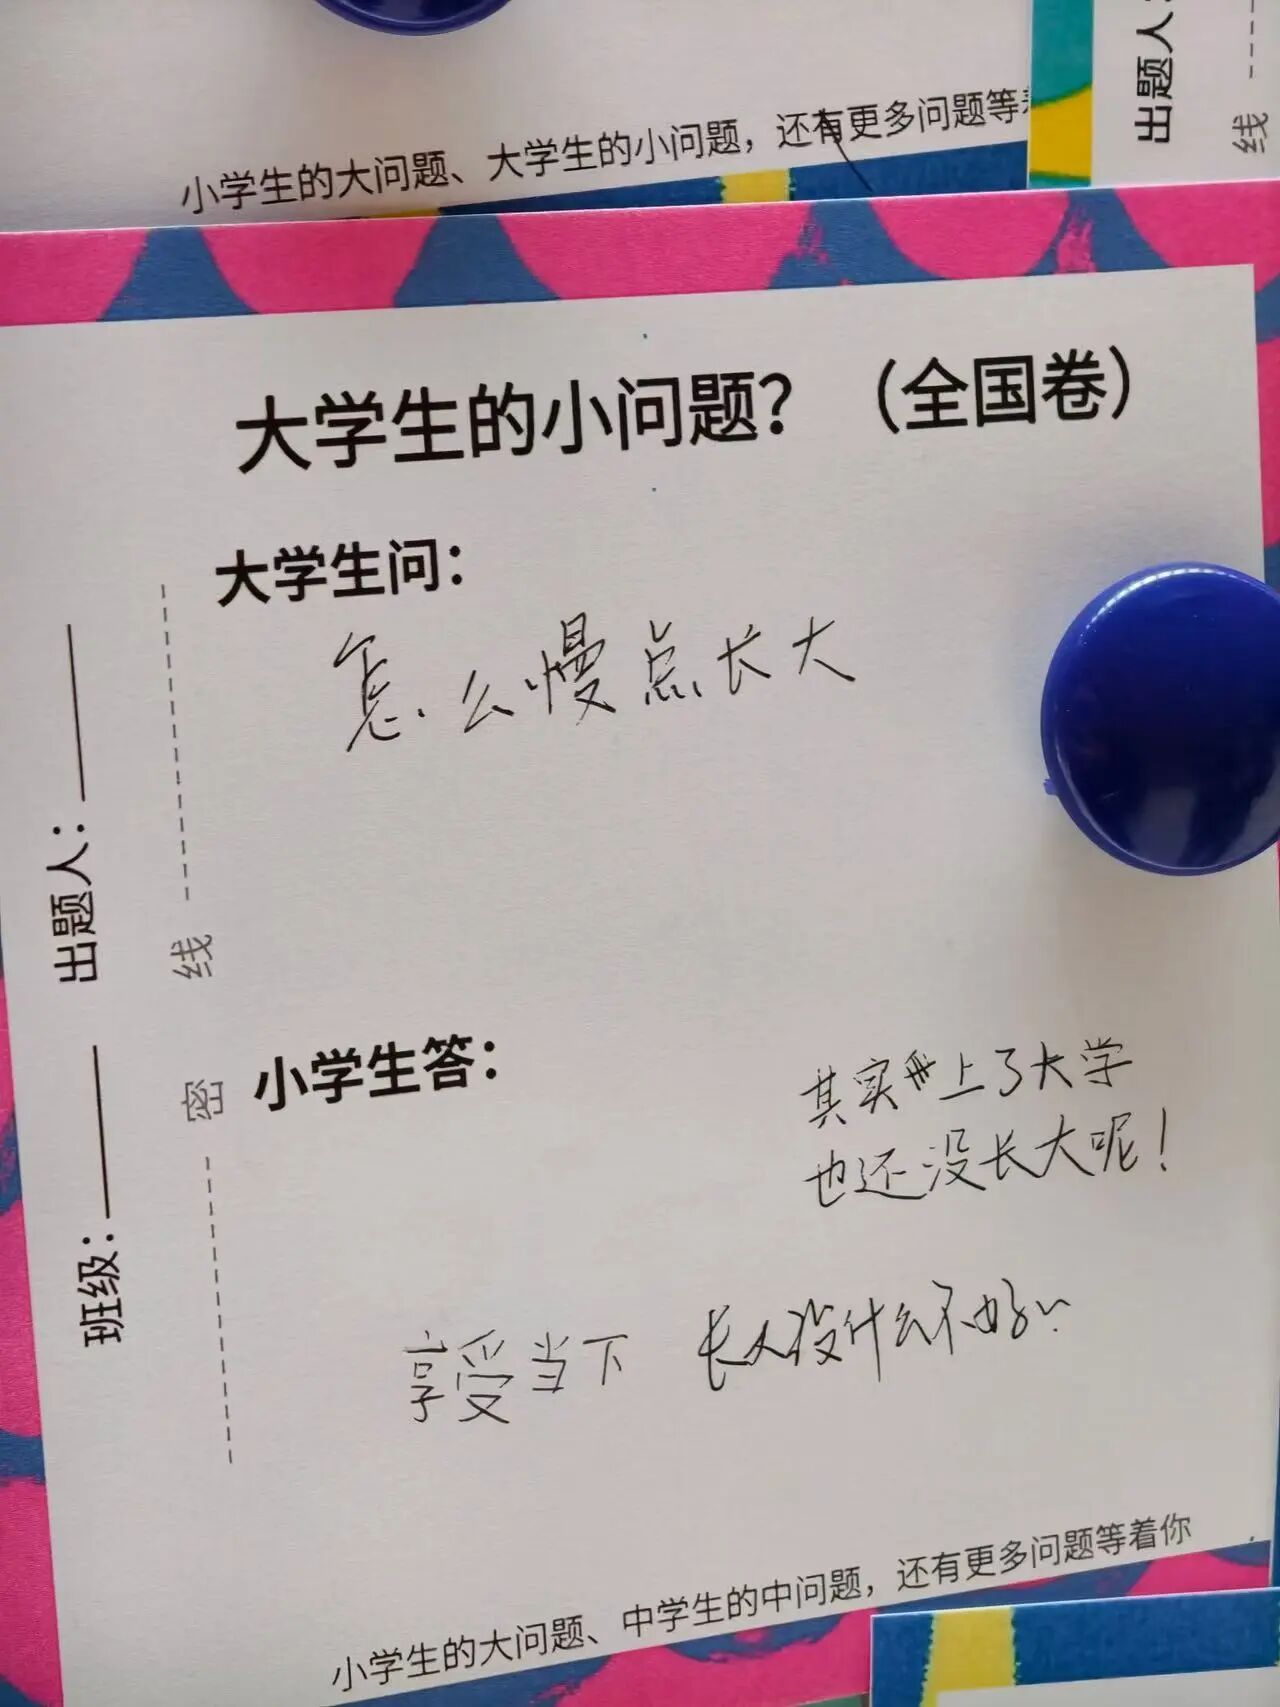 小学生的大问题、大学生的小问题，还有更多问题等
出题人：
线
大学生的小问题？（全国卷）
大学生问：
怎么慢点长大
出题人：
线
小学生答：
密
其实上了大学
也还没长大呢！
班级：
享受当下
长大没什么不好
小学生的大问题、中学生的中问题，还有更多问题等着你